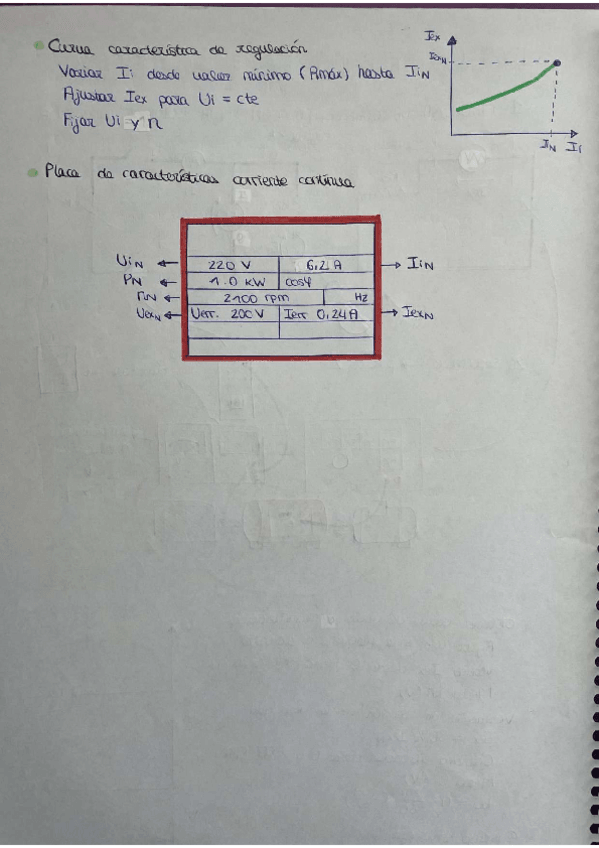 Curva característica de regulación
Variar Ii desde valor mínimo (Rmáx) hasta IiN
Ajustar Iex para Ui = cte
Fijar Ui y n
Iex
IexN
IN Ii
Placa de características corriente continua
UiN 220 V 6,2 A IiN
PN 1.0 KW cosφ
nN 2100 rpm Hz
UexN Uerr. 200V Ierr 0,24A IexN